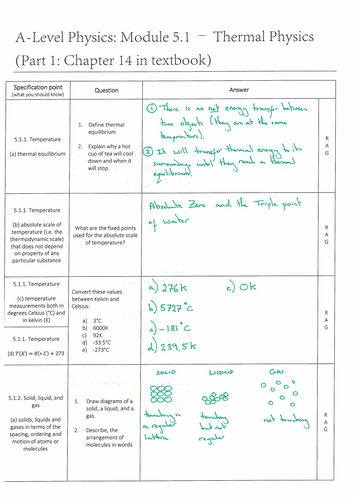 A-Level Physics: Module 5.1 – Thermal Physics
(Part 1: Chapter 14 in textbook)
Specification point
(what you should know)
Question
Answer
5.1.1. Temperature
(a) thermal equilibrium
1. Define thermal
equilibrium
2. Explain why a hot
cup of tea will cool
down and when it
will stop.
① There is no net energy transfer between
two objects (they are at the same
temperature).
② It will transfer thermal energy to its
surroundings until they reach a thermal
equilibrium.
R
A
G
5.1.1. Temperature
(b) absolute scale of
temperature (i.e. the
thermodynamic scale)
that does not depend
on property of any
particular substance
What are the fixed points
used for the absolute scale
of temperature?
Absolute Zero and the Triple point
of water
R
A
G
5.1.1. Temperature
(c) temperature
measurements both in
degrees Celsius (°C) and
in kelvin (K)
5.1.1. Temperature
(d) T(K) ≈ θ(°C) + 273
Convert these values
between Kelvin and
Celsius:
a) 3°C
b) 6000K
c) 92K
d) -33.5°C
e) -273°C
a) 276k
e) 0k
b) 5727°C
c) -181°C
d) 239.5k
R
A
G
5.1.2. Solid, liquid, and
gas
(a) solids, liquids and
gases in terms of the
spacing, ordering and
motion of atoms or
molecules
1. Draw diagrams of a
solid, a liquid, and a
gas.
2. Describe, the
arrangement of
molecules in words
SOLID
LIQUID
GAS
touching in
a regular
lattice
touching
but not
regular
not touching
R
A
G